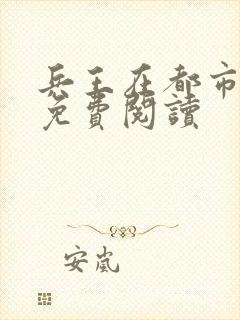 兵王在都市
免費閱讀
安嵐